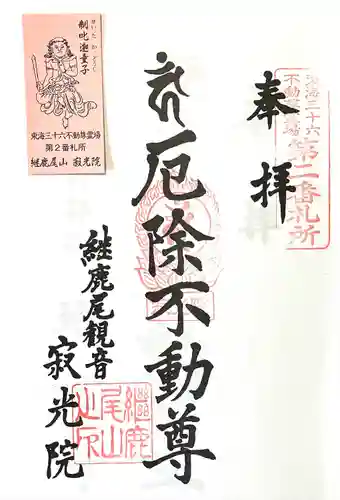 奉拝
東海三十六
不動尊霊場
第二番札所
厄除不動尊
継鹿尾観音
寂光院
繼鹿
尾山
之印
せいたかどうじ
制吒迦童子
東海三十六不動尊霊場
第2番札所
継鹿尾山 寂光院